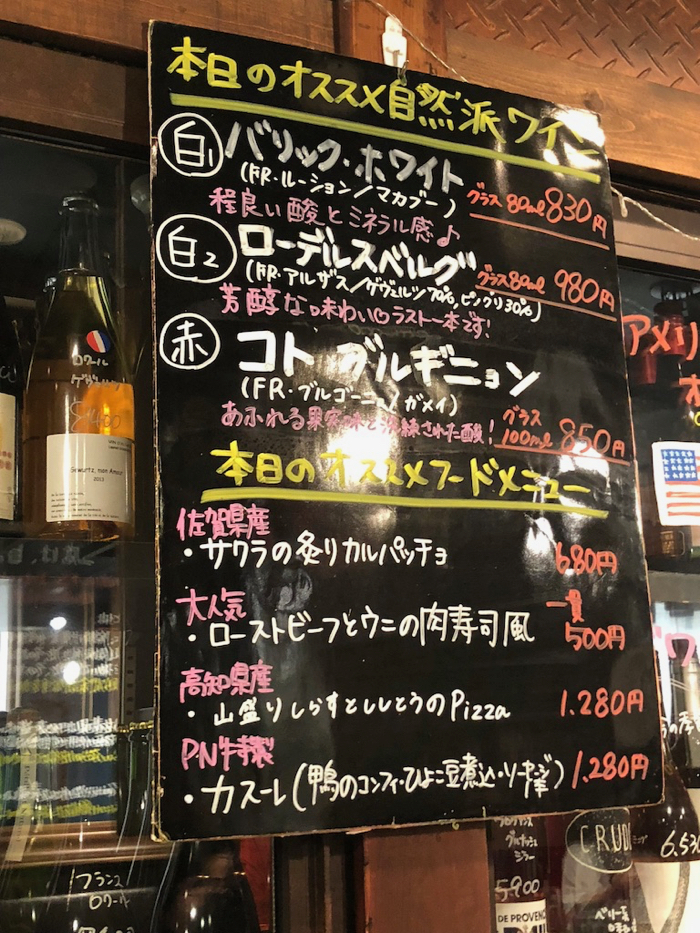 本日のオススメ自然派ワイン
白1 バリック・ホワイト
(FR・ルーション/マカブー)
グラス80ml 830円
程良い酸とミネラル感♪
白2 ローデルスベルグ
(FR・アルザス/ゲヴェルツ70%, ピングリ30%)
グラス80ml 980円
芳醇な味わい ラスト一本です!
赤 コト ブルギニョン
(FR・ブルゴーニュ/ガメイ)
あふれる果実味と洗練された酸!
グラス100ml 850円
本日のオススメフードメニュー
佐賀県産
・サワラの炙りカルパッチョ 680円
大人気
・ローストビーフとウニの肉寿司風 一貫500円
高知県産
・山盛りしらすとししとうのPizza 1.280円
PN特製
・カスーレ(鴨のコンフィ・ひよこ豆煮込・ソーセージ) 1.280円
ロワール
Gewurtz, mon Amour
2013
アメリ
フランス
ロワール
グルナッシュ
シラー
5.900
DE PROVENC
CRUD
6.53